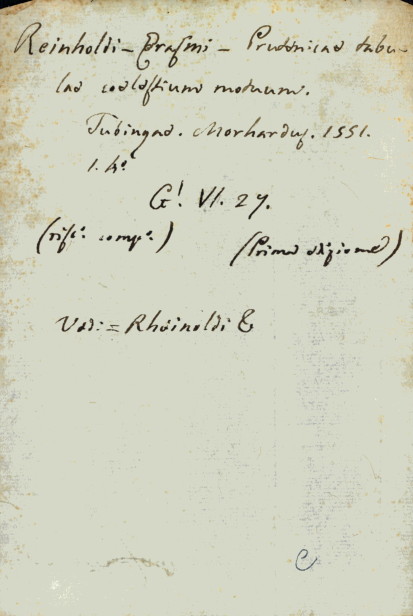 Reinholdi - Erasmi - Prutenicae tabu-
lae coelestium motuum.
Tubingae. Morhardus. 1551.
1. 4º
G! VI. 27.
(risc.º comp.º) (Prima edizione)
Vedi: = Rheinoldi E
C